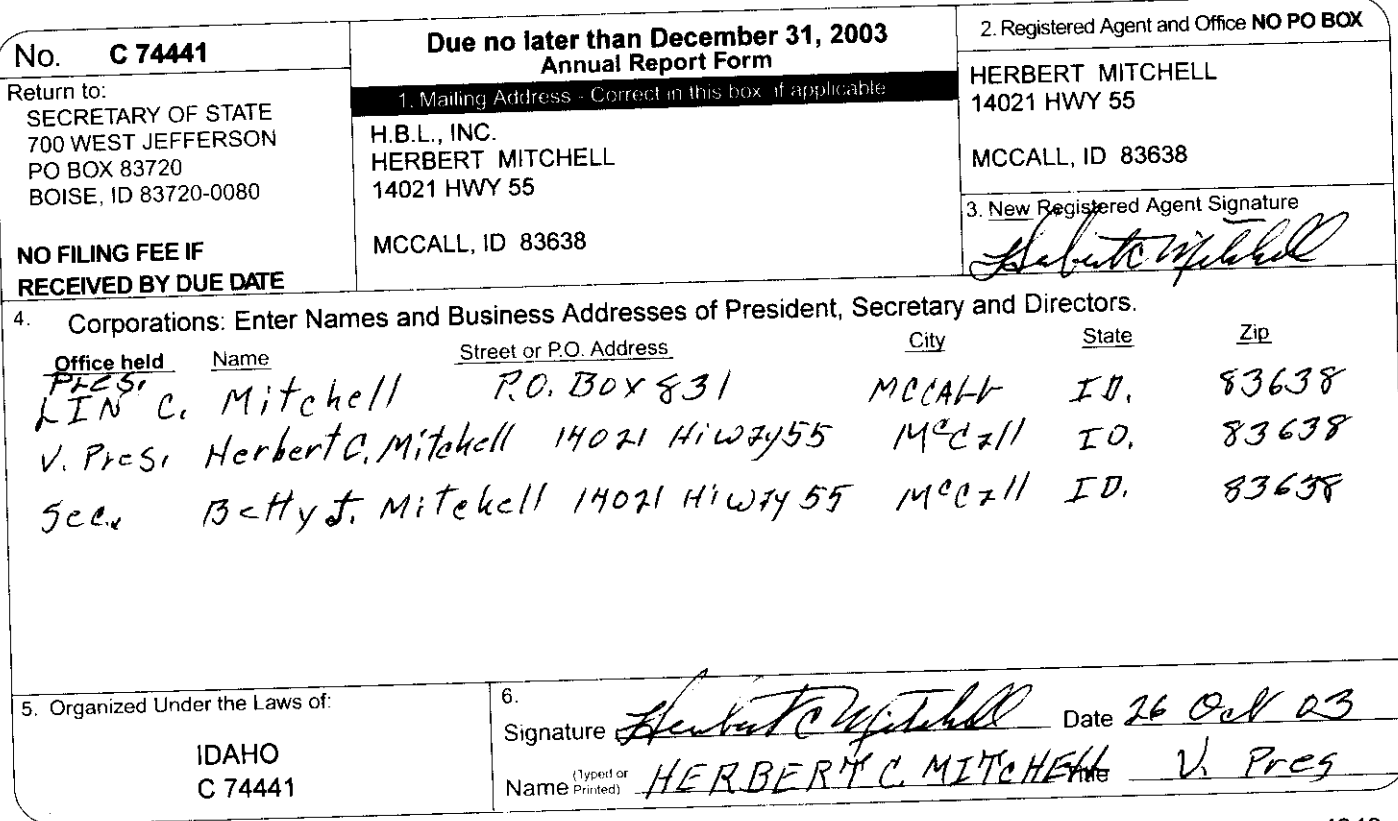 No. C 74441
Return to:
SECRETARY OF STATE
700 WEST JEFFERSON
PO BOX 83720
BOISE, ID 83720-0080
NO FILING FEE IF
RECEIVED BY DUE DATE
Due no later than December 31, 2003
Annual Report Form
1. Mailing Address - Correct in this box if applicable
H.B.L., INC.
HERBERT MITCHELL
14021 HWY 55
MCCALL, ID 83638
2. Registered Agent and Office NO PO BOX
HERBERT MITCHELL
14021 HWY 55
MCCALL, ID 83638
3. New Registered Agent Signature
Herbert C Mitchell
4. Corporations: Enter Names and Business Addresses of President, Secretary and Directors.
Office held Name Street or P.O. Address City State Zip
Pres.
LIN C. Mitchell P.O. Box 831 MCCALL ID. 83638
V. Pres. Herbert C. Mitchell 14021 Hiway 55 McCall ID. 83638
Sec. Betty J. Mitchell 14021 Hiway 55 McCall ID. 83638
5. Organized Under the Laws of:
IDAHO
C 74441
6.
Signature Herbert C Mitchell Date 26 Oct 03
Name (Typed or Printed) HERBERT C. MITCHELL Title V. Pres